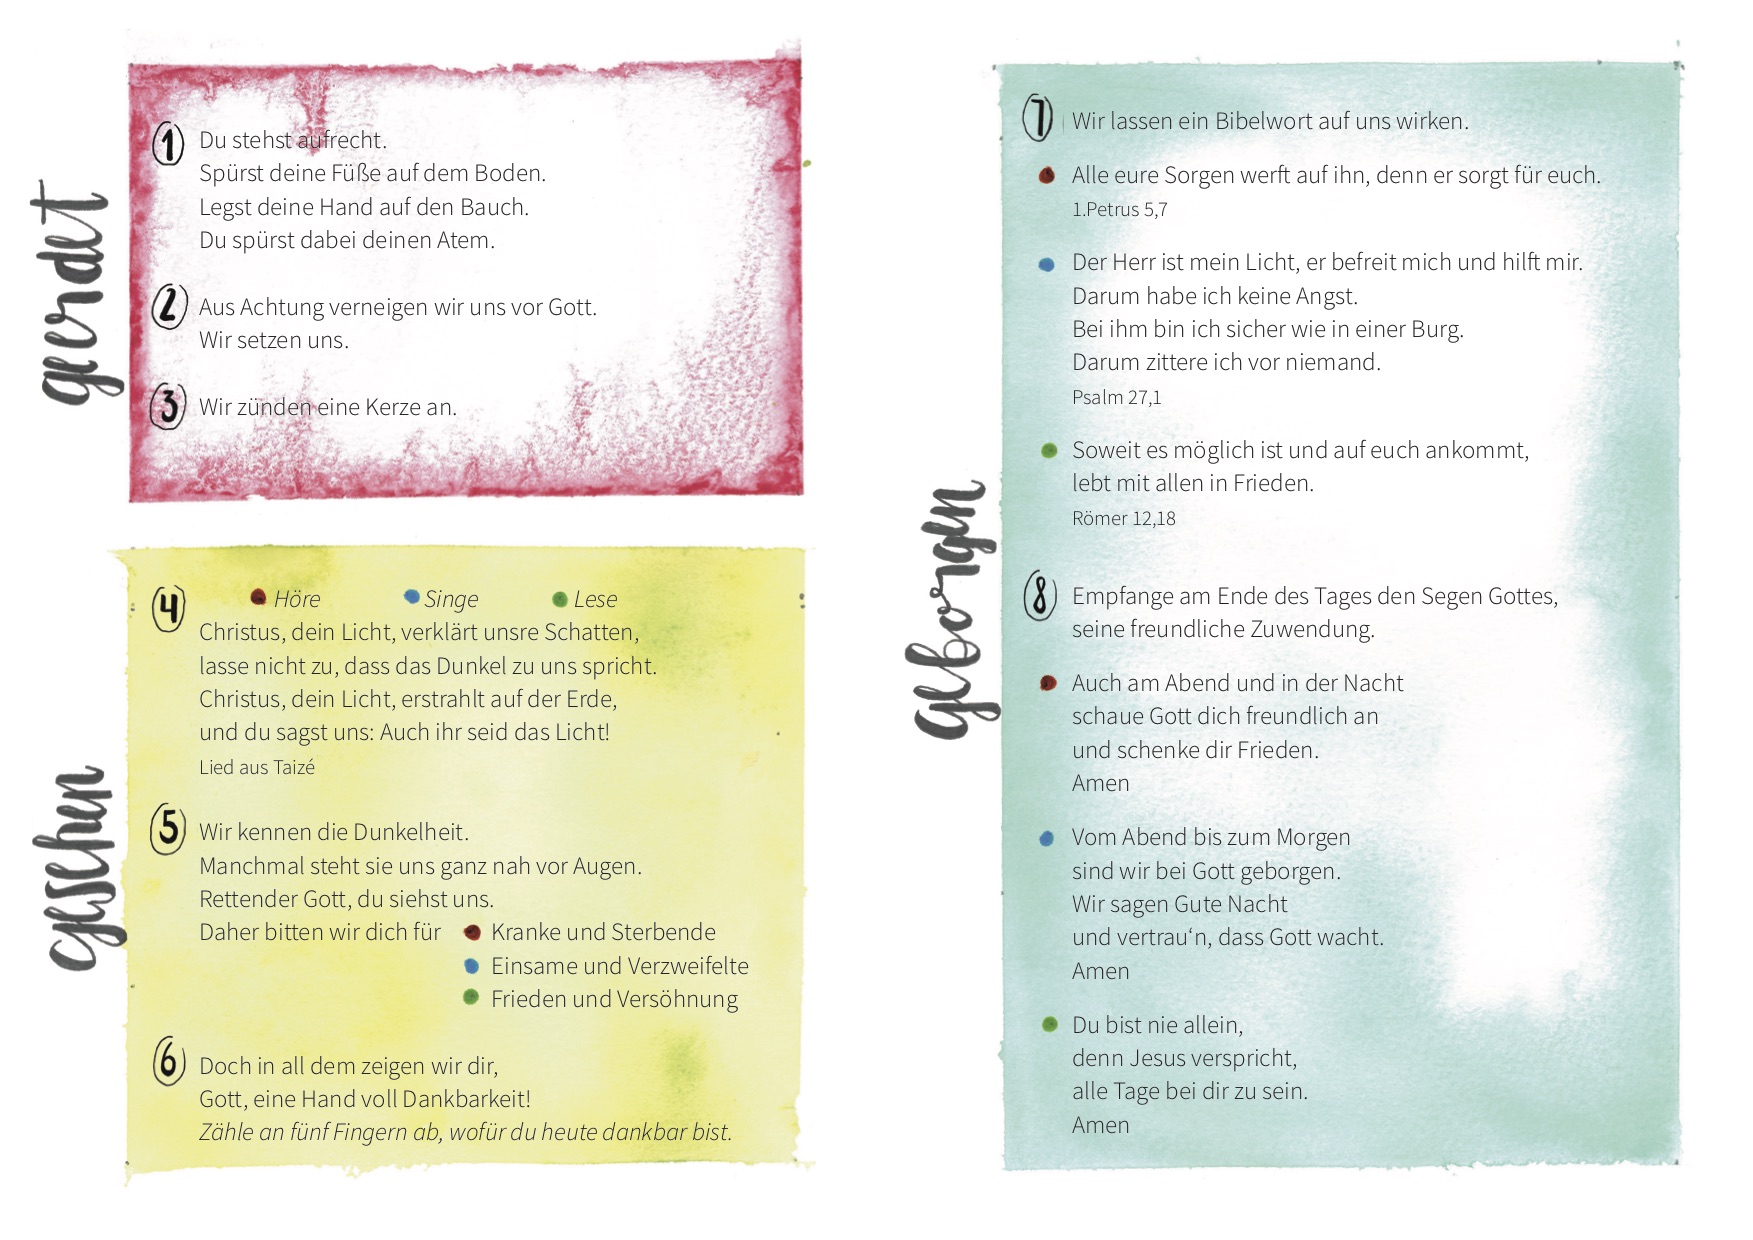 geerdet
1 Du stehst aufrecht.
Spürst deine Füße auf dem Boden.
Legst deine Hand auf den Bauch.
Du spürst dabei deinen Atem.
2 Aus Achtung verneigen wir uns vor Gott.
Wir setzen uns.
3 Wir zünden eine Kerze an.
gesehen
4 Höre Singe Lese
Christus, dein Licht, verklärt unsre Schatten,
lasse nicht zu, dass das Dunkel zu uns spricht.
Christus, dein Licht, erstrahlt auf der Erde,
und du sagst uns: Auch ihr seid das Licht!
Lied aus Taizé
5 Wir kennen die Dunkelheit.
Manchmal steht sie uns ganz nah vor Augen.
Rettender Gott, du siehst uns.
Daher bitten wir dich für Kranke und Sterbende
Einsame und Verzweifelte
Frieden und Versöhnung
6 Doch in all dem zeigen wir dir,
Gott, eine Hand voll Dankbarkeit!
Zähle an fünf Fingern ab, wofür du heute dankbar bist.
geborgen
7 Wir lassen ein Bibelwort auf uns wirken.
Alle eure Sorgen werft auf ihn, denn er sorgt für euch.
1.Petrus 5,7
Der Herr ist mein Licht, er befreit mich und hilft mir.
Darum habe ich keine Angst.
Bei ihm bin ich sicher wie in einer Burg.
Darum zittere ich vor niemand.
Psalm 27,1
Soweit es möglich ist und auf euch ankommt,
lebt mit allen in Frieden.
Römer 12,18
8 Empfange am Ende des Tages den Segen Gottes,
seine freundliche Zuwendung.
Auch am Abend und in der Nacht
schaue Gott dich freundlich an
und schenke dir Frieden.
Amen
Vom Abend bis zum Morgen
sind wir bei Gott geborgen.
Wir sagen Gute Nacht
und vertrau‘n, dass Gott wacht.
Amen
Du bist nie allein,
denn Jesus verspricht,
alle Tage bei dir zu sein.
Amen